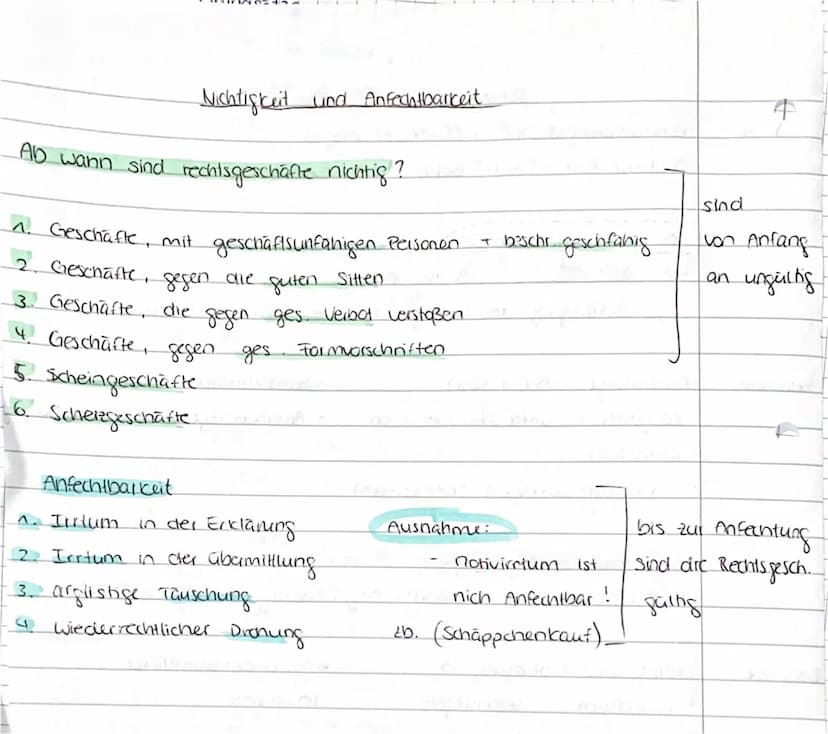 Nichtigkeit und Anfechtbarkeit
Ab wann sind rechtsgeschäfte nichtig?
1. Geschäfte, mit geschäftsunfähigen Personen + beschr. geschfähig
2. Geschäfte, gegen die guten Sitten
3. Geschäfte, die gegen ges. Verbot verstoßen
4. Geschäfte, gegen ges. Formvorschriften
5. Scheingeschäfte
6. Scherzgeschäfte
sind
von Anfang
an ungültig
Anfechtbarkeit
1. Irrtum in der Erklärung
2. Irrtum in der Übermittlung
3. arglistige Täuschung
4. wiederrechtlicher Drohung
Ausnahme:
- Motivirrtum ist
nich Anfechtbar!
zb. (Schäppchenkauf)
bis zur Anfechtung
sind die Rechtsgesch.
gültig